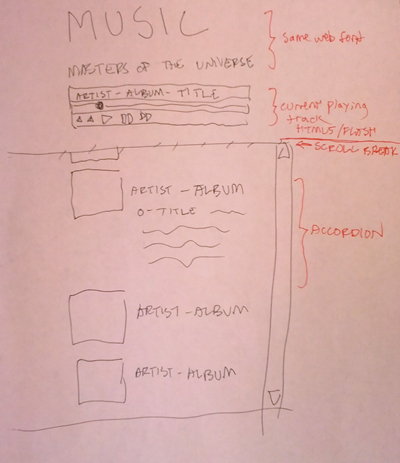 MUSIC
same web font
MASTERS OF THE UNIVERSE
ARTIST - ALBUM - TITLE
current playing
track
HTML5/FLASH
← SCROLL BREAK
ARTIST - ALBUM
O - TITLE
ACCORDION
ARTIST - ALBUM
ARTIST - ALBUM